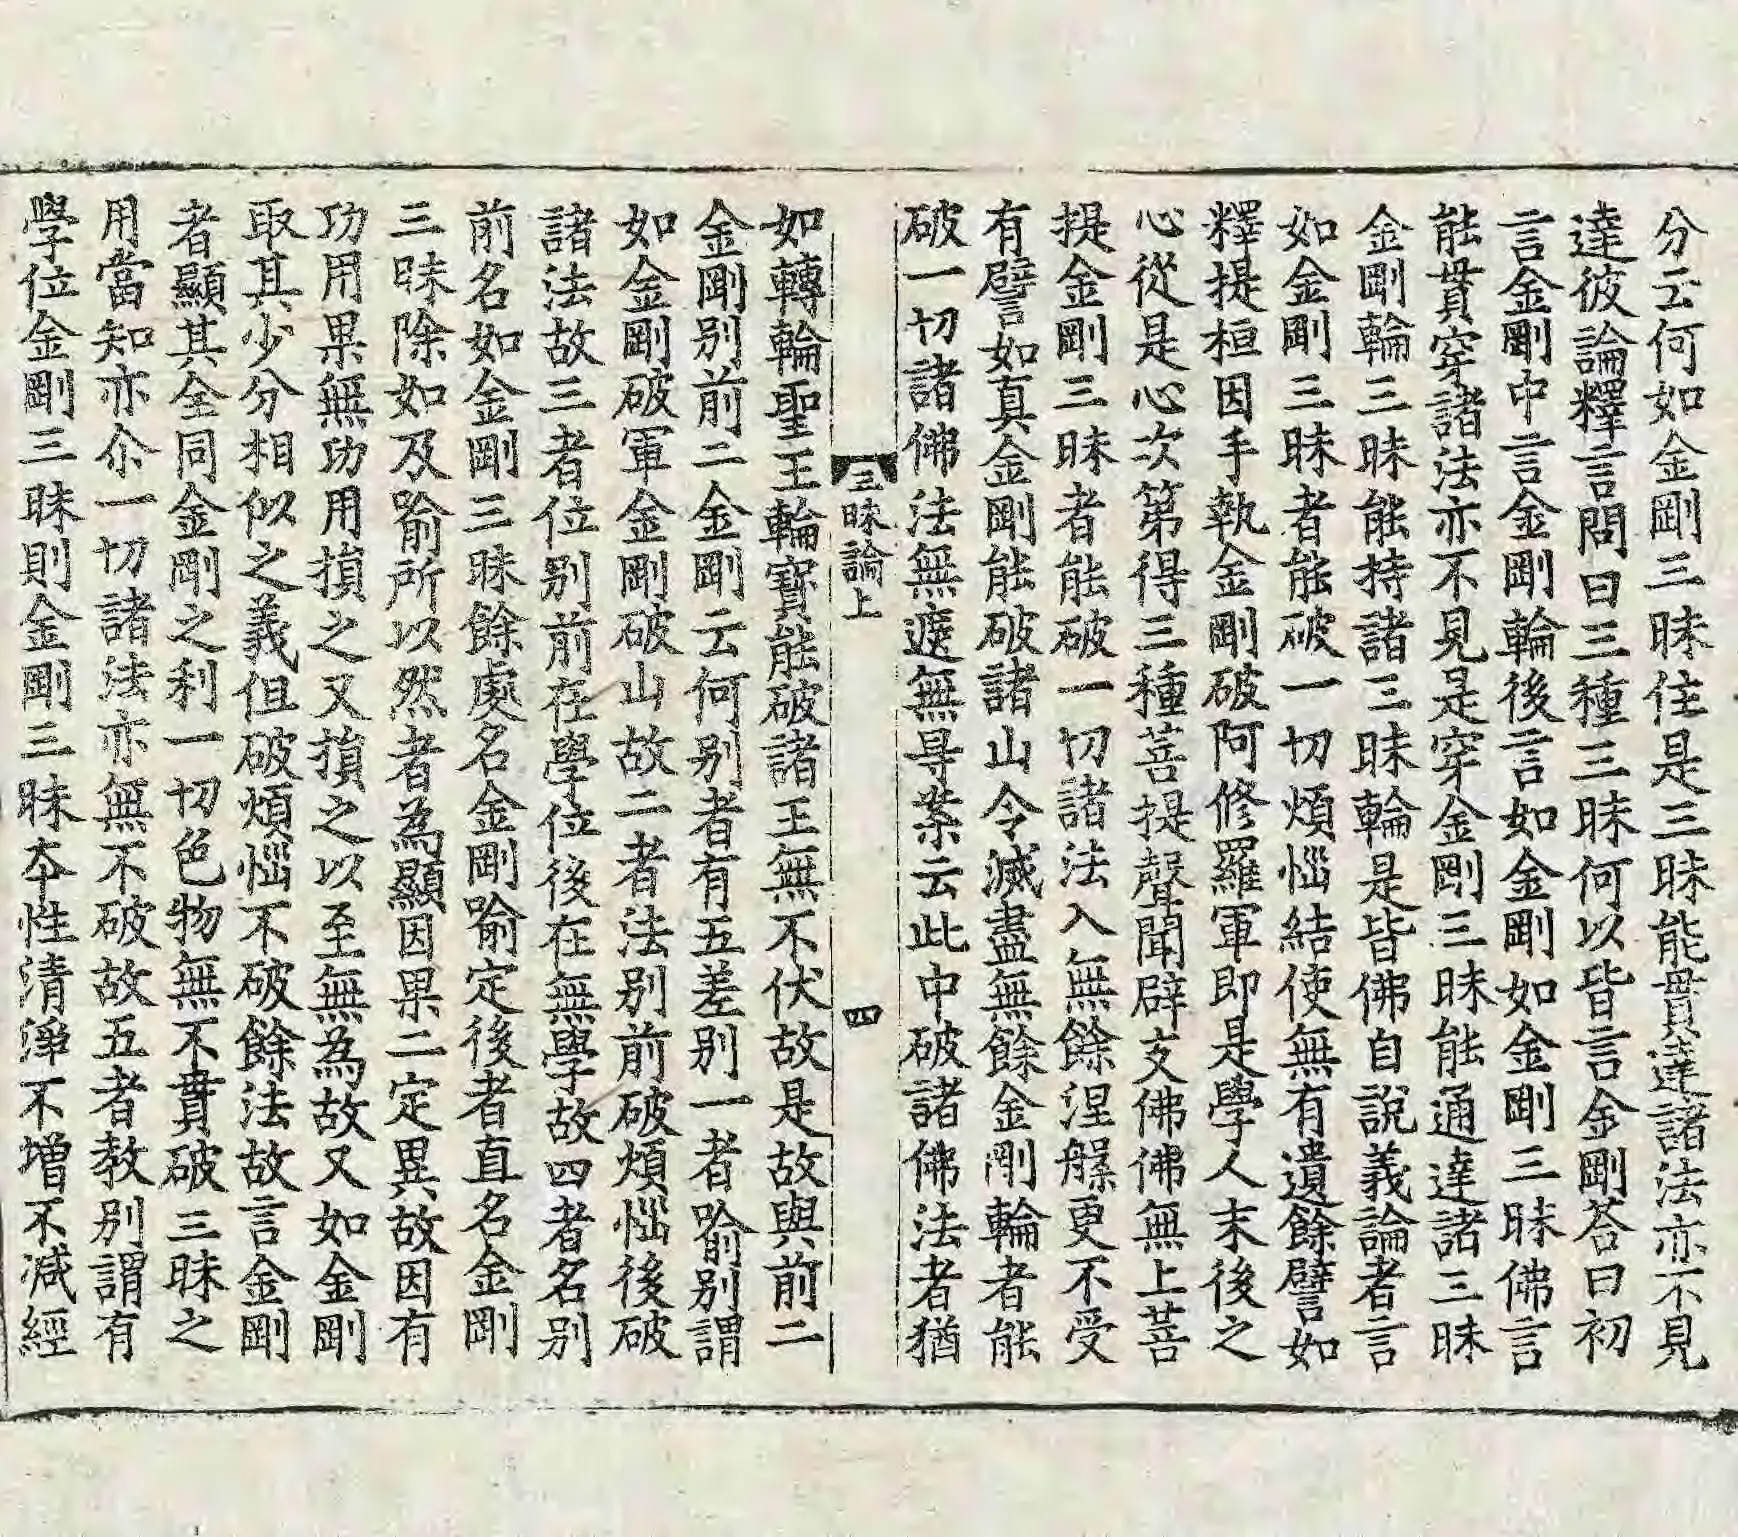 分云何如金剛三昧住是三昧能貫達諸法亦不見
達彼論釋言問曰三種三昧何以皆言金剛荅曰初
言金剛中言金剛輪後言如金剛如金剛三昧佛言
能貫穿諸法亦不見是穿金剛三昧能通達諸三昧
金剛輪三昧能持諸三昧輪是皆佛自說義論者言
如金剛三昧者能破一切煩惱結使無有遺餘譬如
釋提桓因手執金剛破阿修羅軍即是學人末後之
心從是心次第得三種菩提聲聞辟支佛佛無上菩
提金剛三昧者能破一切諸法入無餘涅槃更不受
有譬如真金剛能破諸山令滅盡無餘金剛輪者能
破一切諸佛法無遮無㝵案云此中破諸佛法者猶
三昧論上
四
如轉輪聖王輪寶能破諸王無不伏故是故與前二
金剛別前二金剛云何別者有五差別一者喻別謂
如金剛破軍金剛破山故二者法別前破煩惱後破
諸法故三者位別前在學位後在無學故四者名別
前名如金剛三昧餘處名金剛喻定後者直名金剛
三昧除如及喻所以然者為顯因果二定異故因有
功用果無功用損之又損之以至無為故又如金剛
取其少分相似之義但破煩惱不破餘法故言金剛
者顯其全同金剛之利一切色物無不貫破三昧之
用當知亦尒一切諸法亦無不破故五者教別謂有
學位金剛三昧則金剛三昧本性清淨不增不減經